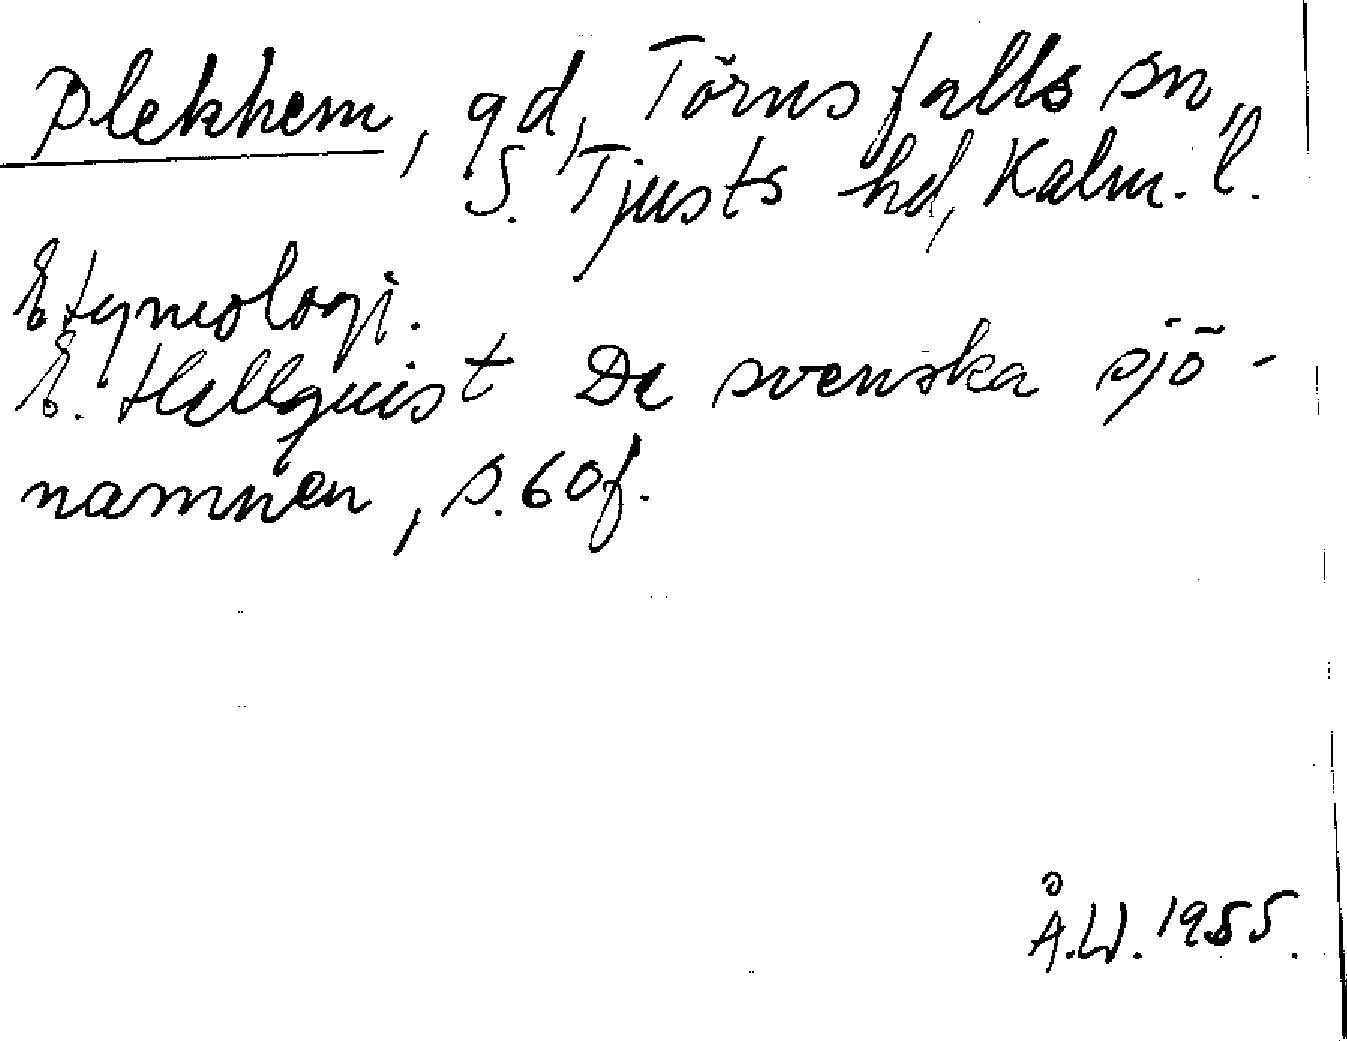 Plekhem, gd, Törnsfalls sn,
S. Tjusts hd, Kalm. l.
Etymologi.
E. Hellquist De svenska sjö-
namnen, s. 60f.
Å.W. 1955.